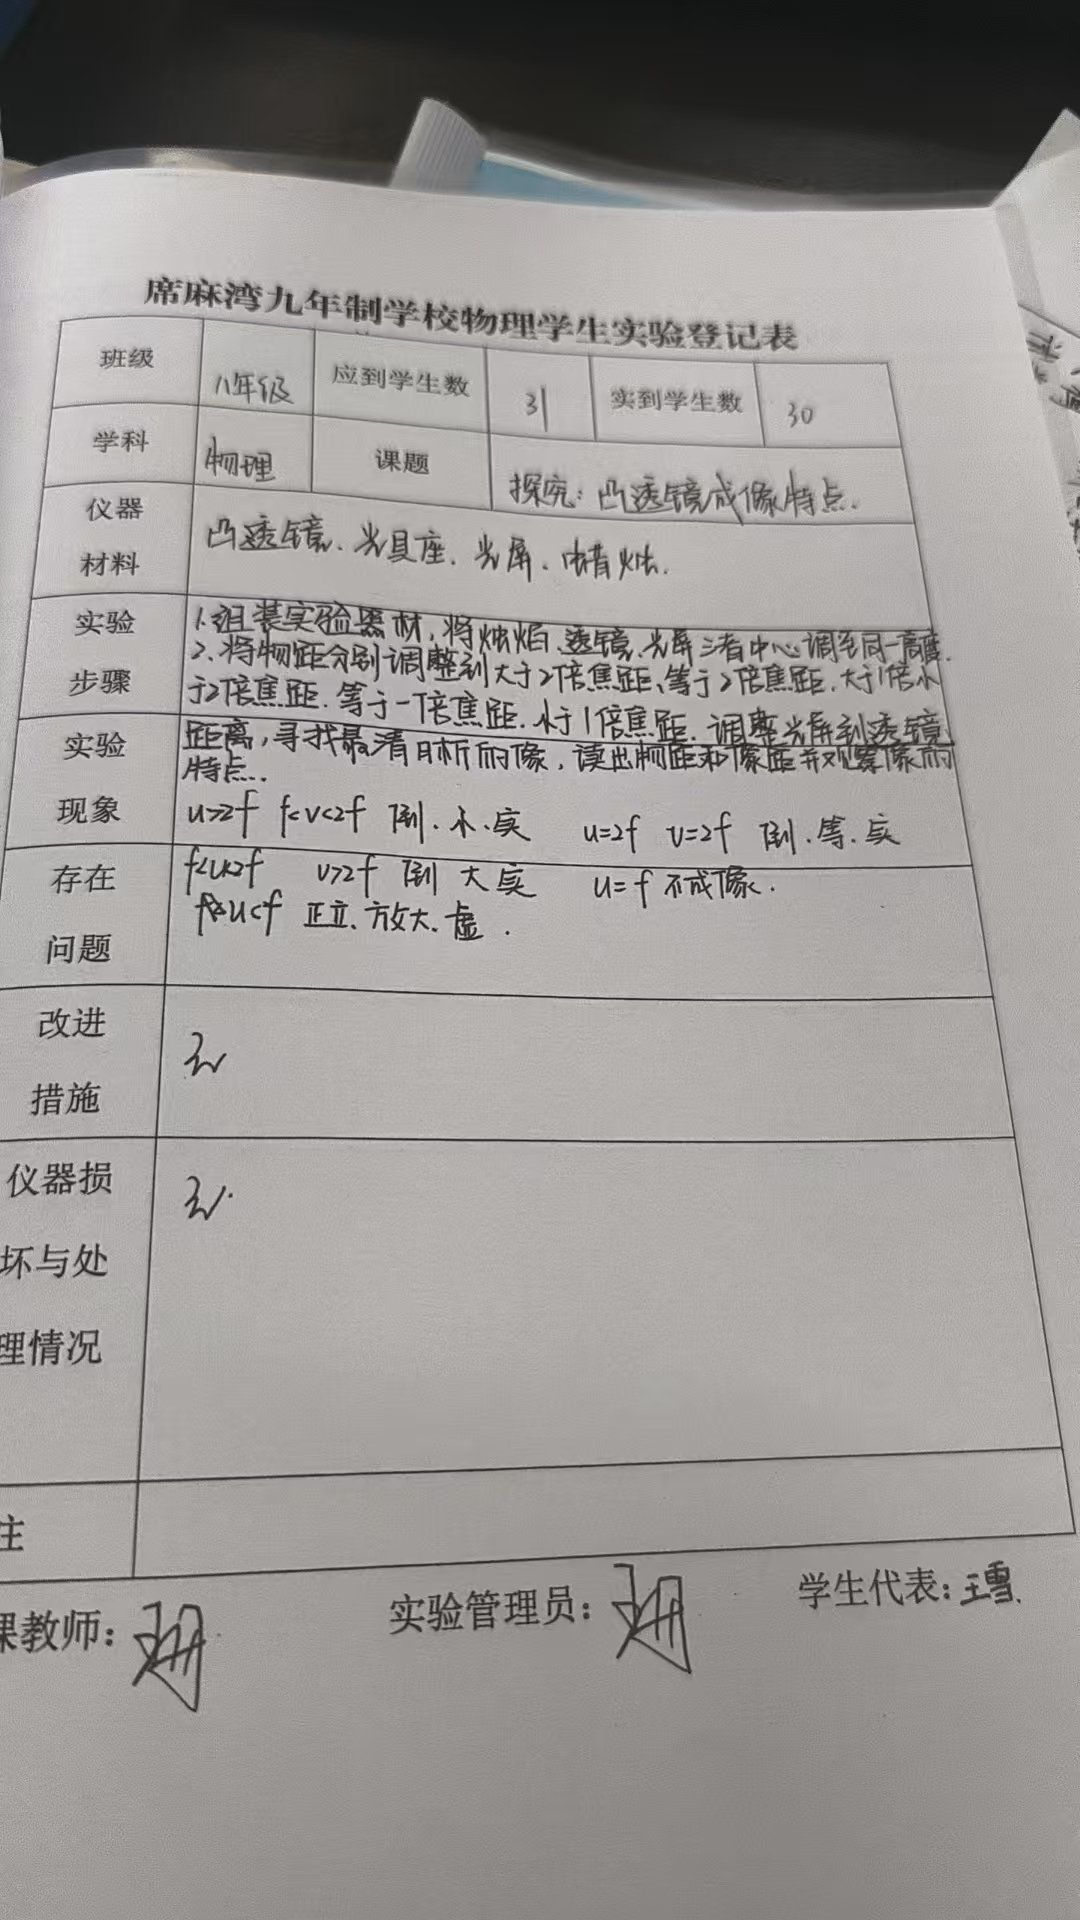 席麻湾九年制学校物理学生实验登记表
班级 八年级 应到学生数 31 实到学生数 30
学科 物理 课题 探究：凸透镜成像特点.
仪器材料 凸透镜、光具座、光屏、蜡烛.
实验步骤
1.组装实验器材，将烛焰、透镜、光屏三者中心调至同一高度.
2、将物距分别调整到大于2倍焦距、等于2倍焦距、大于1倍小
于2倍焦距、等于一倍焦距、小于1倍焦距、调整光屏到透镜
实验现象
距离，寻找最清晰的像，读出物距和像距并观察像的
特点.
u>2f f<v<2f 倒.小.实 u=2f v=2f 倒.等.实
存在问题
f<u<2f v>2f 倒 大 实 u=f 不成像.
u<f 正立、放大、虚.
改进措施 无
仪器损坏与处理情况 无.
注
课教师: 实验管理员: 学生代表: 王雪.